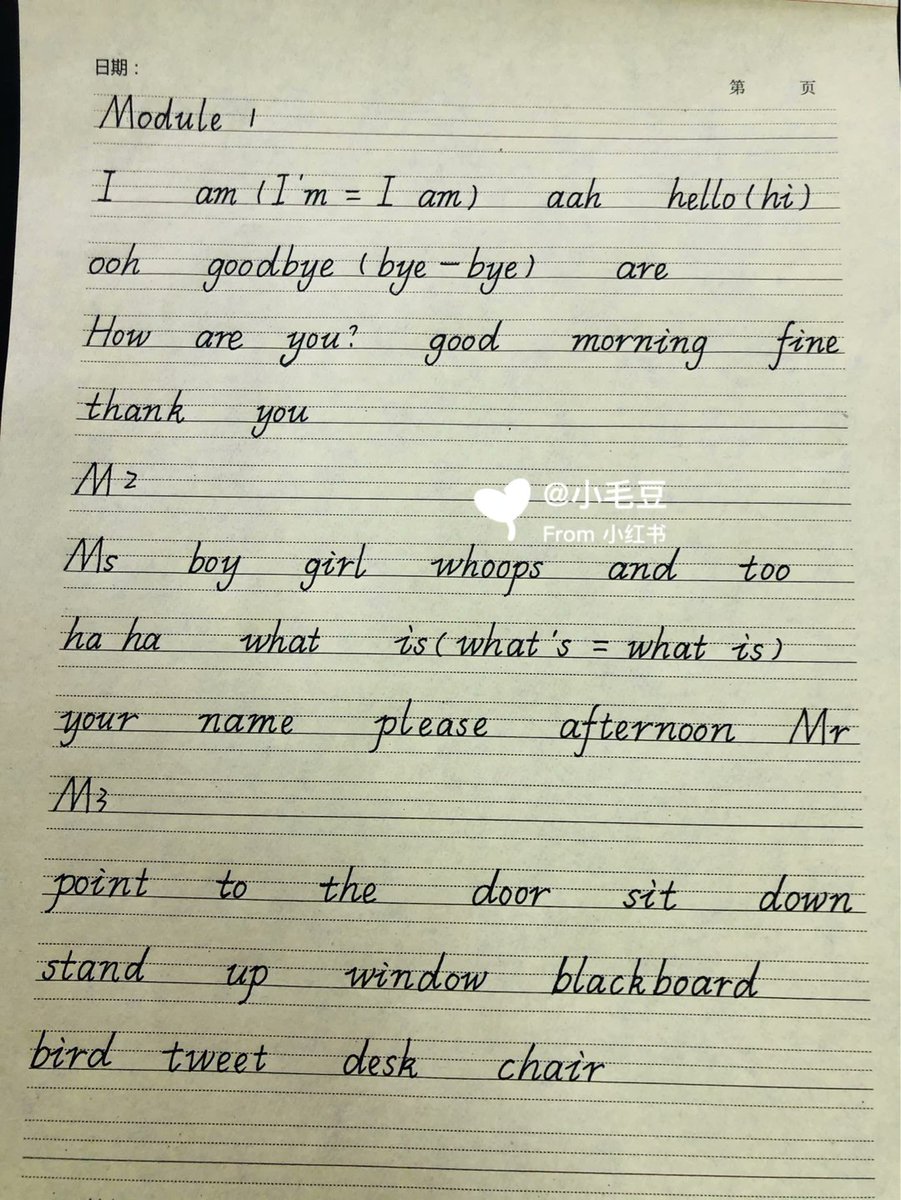 日期：
第 页
Module 1
I am (I'm = I am) aah hello (hi)
ooh goodbye (bye-bye) are
How are you? good morning fine
thank you
M2
@小毛豆
From 小红书
Ms boy girl whoops and too
ha ha what is (what's = what is)
your name please afternoon Mr
M3
point to the door sit down
stand up window blackboard
bird tweet desk chair